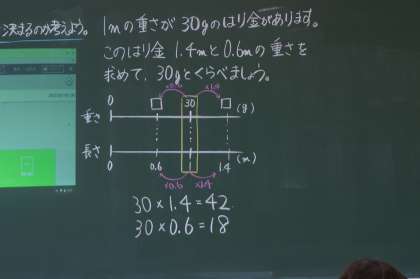 決まるのか考えよう。
1mの重さが30gのはり金があります。
このはり金1.4mと0.6mの重さを
求めて、30gとくらべましょう。
×0.6 ×1.4
0 □ 30 □ (g)
重さ
長さ
0 0.6 1 1.4 (m)
×0.6 ×1.4
30×1.4=42
30×0.6=18